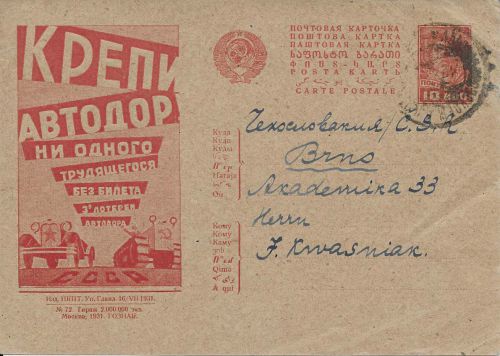 КРЕПИ
АВТОДОР
НИ ОДНОГО
ТРУДЯЩЕГОСЯ
БЕЗ БИЛЕТА
3й ЛОТЕРЕИ
АВТОДОРА
СССР
Изд. НКПТ. Уп. Главл. 16/VII 1931.
№ 72. Тираж 2.000.000 экз.
Москва, 1931. ГОЗНАК.
ПОЧТОВАЯ КАРТОЧКА
ПОШТОВА КАРТКА
ПАШТОВАЯ КАРТКА
ՓՈՍՏ-ՔԱՐՏ
POSTA KARTЬ
CARTE POSTALE
10 КОП
Куда
Куди
Куды
Haraja
Où
Кому
Кому
Каму
Qimə
À qui
Чехословакия/C.S.R
Brno
Akademika 33
Herrn
F. Kwasniak.